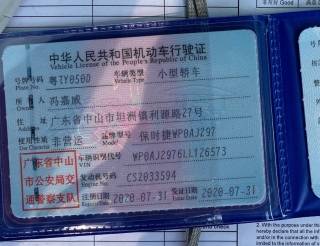 中华人民共和国机动车行驶证
Vehicle License of the People's Republic of China
号牌号码 粤TY050D 车辆类型 小型轿车
Plate No. Vehicle Type
所有人 冯嘉威
Owner
住址 广东省中山市坦洲镇利源路27号
Address
使用性质 非营运 品牌型号 保时捷WP0AJ297
Use Character Model
广东省中山市公安局交通警察支队
车辆识别代号 WP0AJ2976LL126573
VIN
发动机号码 CS2033594
Engine No.
注册日期 2020-07-31 发证日期 2020-07-31
Register Date Issue Date
2. With the purpose under th
hereby declare that all the inf
and/or in the connection with
limited to the information of t